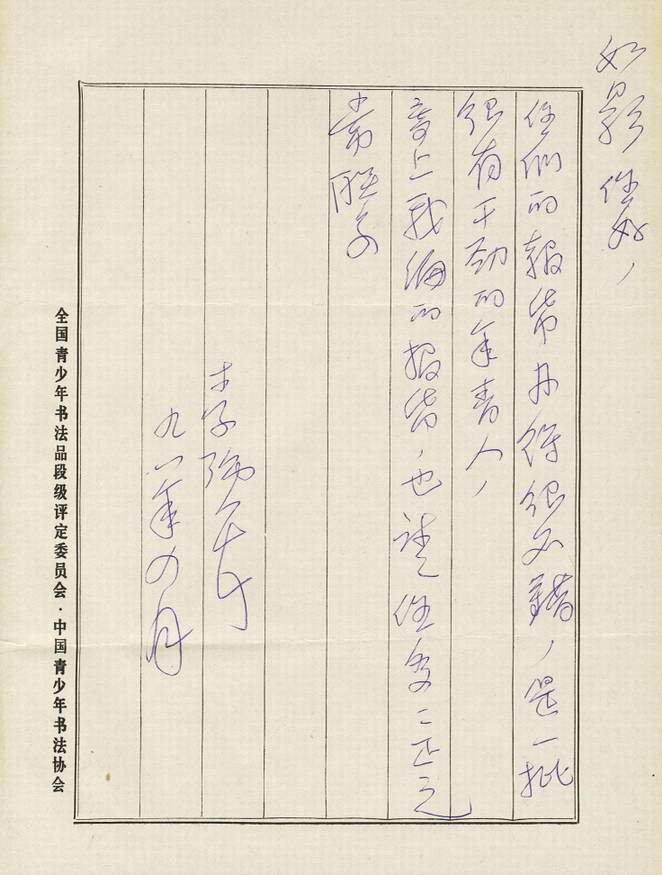 如影 你好，
你们的报纸办得很不错，是一批
很有干劲的年青人，
寄上我编的报纸，也请你多多正之
常联系
李
九一年四月
全国青少年书法品段级评定委员会·中国青少年书法协会